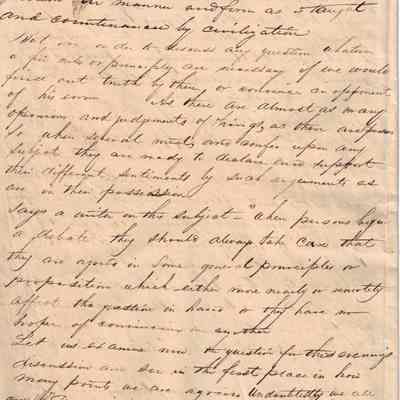 manner and form as taught
and countenanced by civilization
Now in order to discuss any question whatever
a few rules or principles are necessary if we would
find out truth by them or convince an opponent
of his error As there are almost as many
opinions and judgments of things as there are persons
so when several meet and confer upon any
subject they are ready to declare and support
their different sentiments by such arguments as
are in their possession
Says a writer on this subject - "When persons begin
a debate they should always take care that
they are agreed in some general principles or
proposition which either more nearly or remotely
affect the question in hand or they have no
hopes of convincing one another
Let us examine now the question for this evenings
discussion and see in the first place in how
many points we are agreed Undoubtedly we all